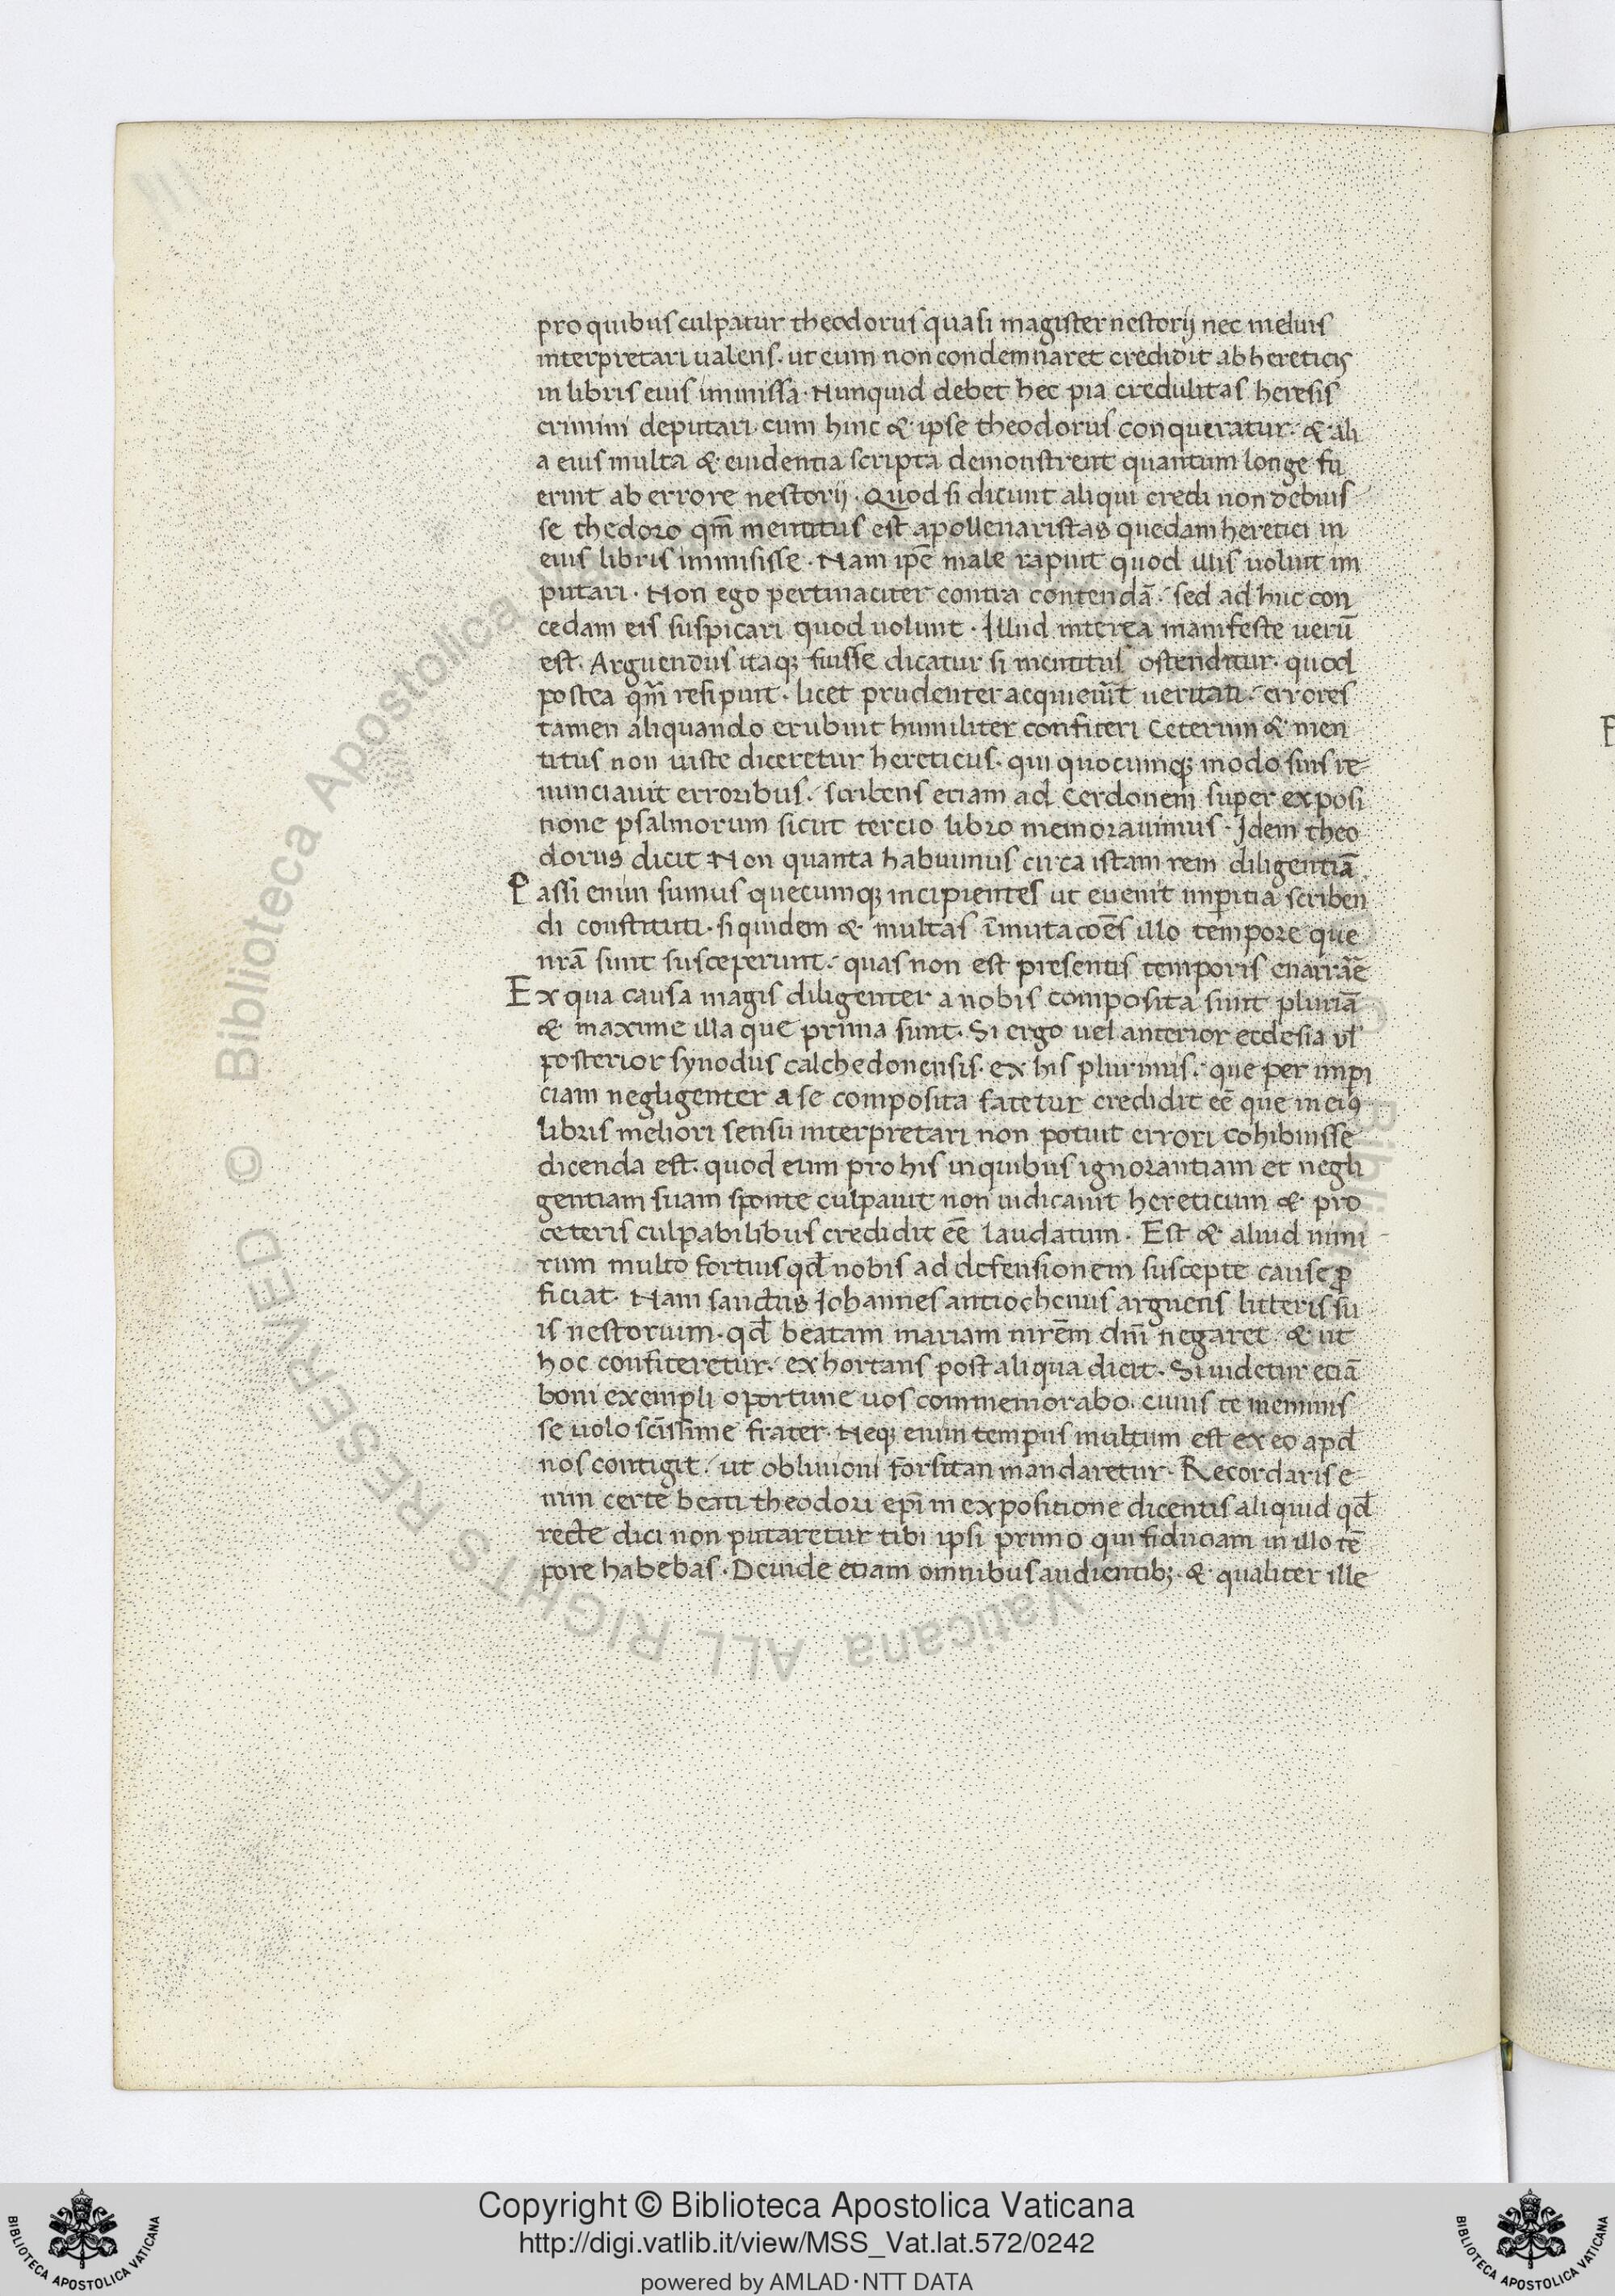 pro quibus culpatur theodorus quasi magister nestorij nec melius
interpretari ualens· ut eum non condemnaret credidit ab hereticis
in libris eius immissa· Nunquid debet hec pia credulitas heresis
crimini deputari· cum hinc & ipse theodorus conqueratur· & ali
a eius multa & euidentia scripta demonstrent quantum longe fu
erint ab errore nestorij· Quod si dicunt aliqui credi non debuis
se thedoro qm̄ mentitus est apollenaristas quedam heretici in
eius libris immisisse· Nam ip̄e male rapuit quod illis uoluit im
putari· Non ego pertinaciter contra contendā· sed ad huc con
cedam eis suspicari quod uolunt· Illud interea manifeste uerū
est· Arguendus itaq; fuisse dicatur si mentitus ostenditur· quod
postea qm̄ resipuit· licet prudenter acquieuīt ueritati· errores
tamen aliquando erubuit humiliter confiteri Ceterum & men
titus non iuste diceretur hereticus· qui quocumq; modo suis re
nunciauit erroribus· scribens etiam ad Cerdonem super exposi
tione psalmorum sicut tercio libro memorauimus· Idem theo
dorus dicit Non quanta habuimus circa istam rem diligentiā
Passi enim sumus quecumq; incipientes ut euenit imperitia scriben
di constituti· siquidem & multas īmutacōes illo tempore que
nrā sunt susceperunt· quas non est presentis temporis enarrāe
Ex qua causa magis diligenter a nobis composita sunt plurīa
& maxime illa que prima sunt· Si ergo uel anterior ecclesia ul̄
posterior synodus calchedonensis· ex his plurimis· que per imperi
ciam negligenter a se composita fatetur credidit eē que in eius
libris meliori sensu interpretari non potuit errori cohibuisse
dicenda est· quod eum pro his in quibus ignorantiam et negli
gentiam suam sponte culpauit non iudicauit hereticum & pro
ceteris culpabilibus credidit eē laudatum· Est & aliud nimi
rum multo fortius qd̄ nobis ad defensionem suscepte cause pro
ficiat· Nam sanctus Iohannes antiochenus arguens litteris su
is nestorium· qd̄ beatam mariam mr̄em dn̄i negaret· & ut
hoc confiteretur· exhortans post aliqua dicit· Si uidetur etiā
boni exempli oportune uos commemorabo· cuius te meminis
se uolo scīssime frater· Neq; enim tempus multum est ex eo apd̄
nos contigit· ut obliuioni forsitan mandaretur· Recordaris e
nim certe beati theodori ep̄i in expositione dicentis aliquid qd̄
recte dici non putaretur tibi ipsi primo qui fiduciam in illo tē
pore habebas· Deinde etiam omnibus audientib;· & qualiter ille
Copyright © Biblioteca Apostolica Vaticana
http://digi.vatlib.it/view/MSS_Vat.lat.572/0242
powered by AMLAD·NTT DATA
BIBLIOTECA APOSTOLICA VATICANA
BIBLIOTECA APOSTOLICA VATICANA